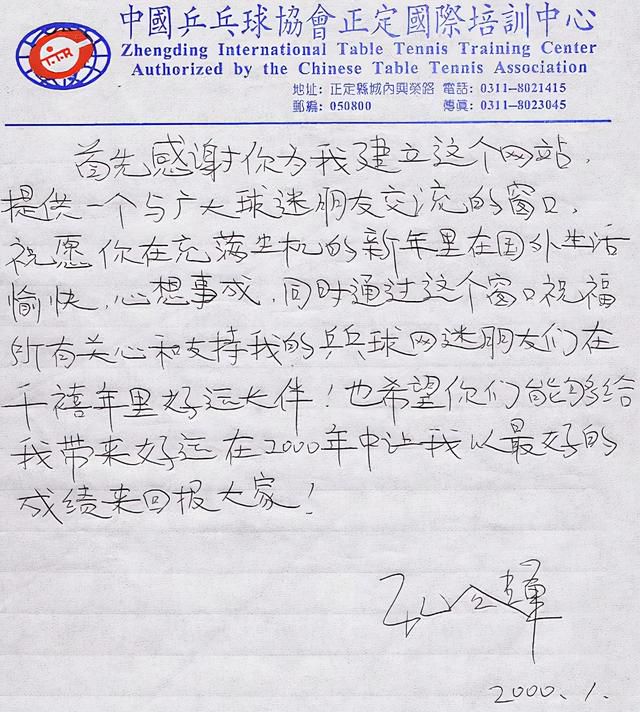 中國乒乓球協會正定國際培訓中心
Zhengding International Table Tennis Training Center
Authorized by the Chinese Table Tennis Association
地址: 正定縣城內興榮路 電話: 0311–8021415
郵編: 050800 傳真: 0311–8023045
首先感谢你为我建立这个网站,
提供一个与广大球迷朋友交流的窗口,
祝愿你在充满生机的新年里在国外生活
愉快,心想事成,同时通过这个窗口祝福
所有关心和支持我的乒乓球网迷朋友们在
千禧年里好运长伴!也希望你们能够给
我带来好运在2000年中让我以最好的
成绩来回报大家!
孔令輝
2000.1.